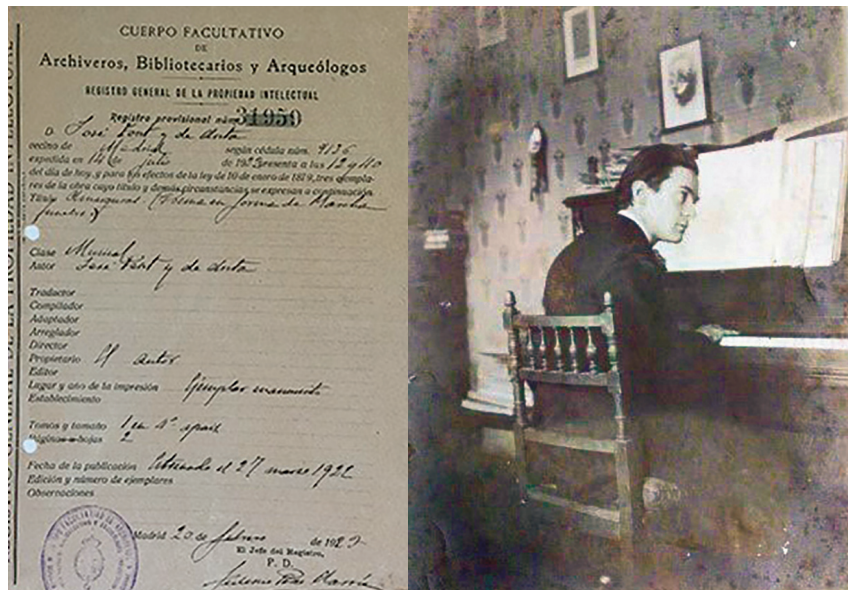 CUERPO FACULTATIVO
DE
Archiveros, Bibliotecarios y Arqueólogos
REGISTRO GENERAL DE LA PROPIEDAD INTELECTUAL
Registro provisional núm. 31959
D. José Font y de Anta
vecino de Madrid según cédula núm. 9126
expedida en 14 de julio de 1923 presenta a las 12 y 40
del día de hoy, y para los efectos de la ley de 10 de enero de 1879, tres ejempla-
res de la obra cuyo título y demás circunstancias se expresan a continuación.
Título (Poema en forma de Marcha
fúnebre)
Clase Musical
Autor José Font y de Anta
Traductor
Compilador
Adaptador
Arreglador
Director
Propietario El autor
Editor
Lugar y año de la impresión Ejemplar manuscrito
Establecimiento
Tomos y tamaño 1 en 4º apais
Páginas o hojas 2
Fecha de la publicación Estrenado el 27 marzo 1922
Edición y número de ejemplares
Observaciones
Madrid 20 de febrero de 192
El Jefe del Registro,
P. D.